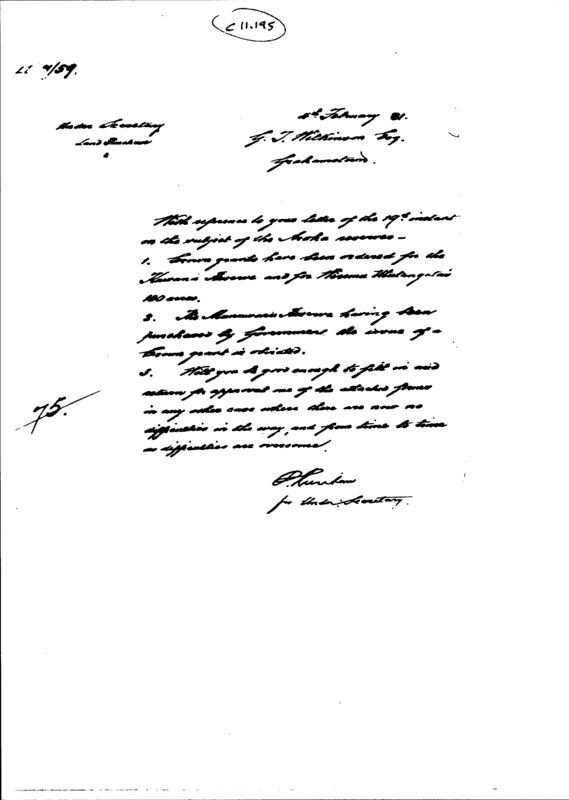 C 11.195
4/59.
4th February 81.
Under Secretary
Land Purchase
G. T. Wilkinson Esq.
Grahamstown.
With reference to your letter of the 19th instant
on the subject of the Aroha reserves –
1. Crown grants have been ordered for the
Reserve and for
100 acres.
2. The Reserve having been
purchased by Government the issue of a
Crown grant is obviated.
3. Will you be good enough to fill in and
return for approval one of the attached forms
in any other case where there are now no
difficulties in the way, and from time to time
as difficulties are overcome.
75.
for Under Secretary.